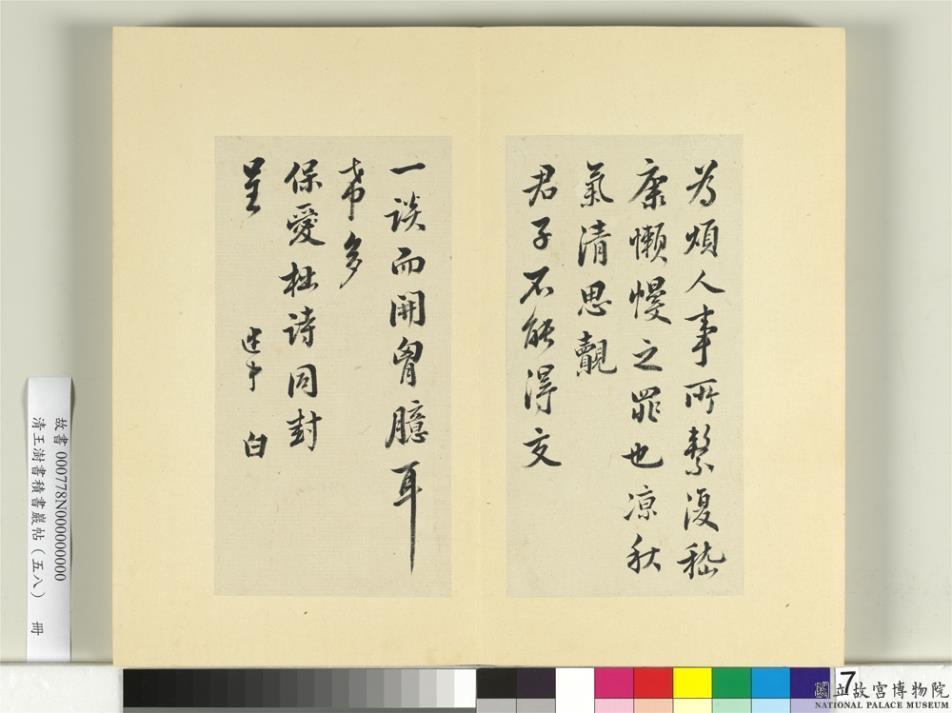 為煩人事所繫復嵇
康懶慢之罪也凉秋
氣清思覿
君子不能得交
一談而開胷臆耳
幸多
保愛拙詩同封
呈 述中 白
故書 000778N000000000
清王澍書積書巖帖（五八） 冊
7
國立故宮博物院
NATIONAL PALACE MUSEUM